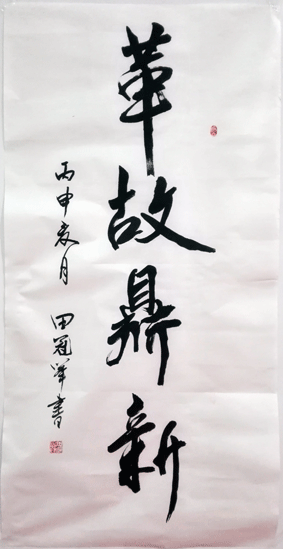 革故鼎新
丙申夏月
田冠軍書